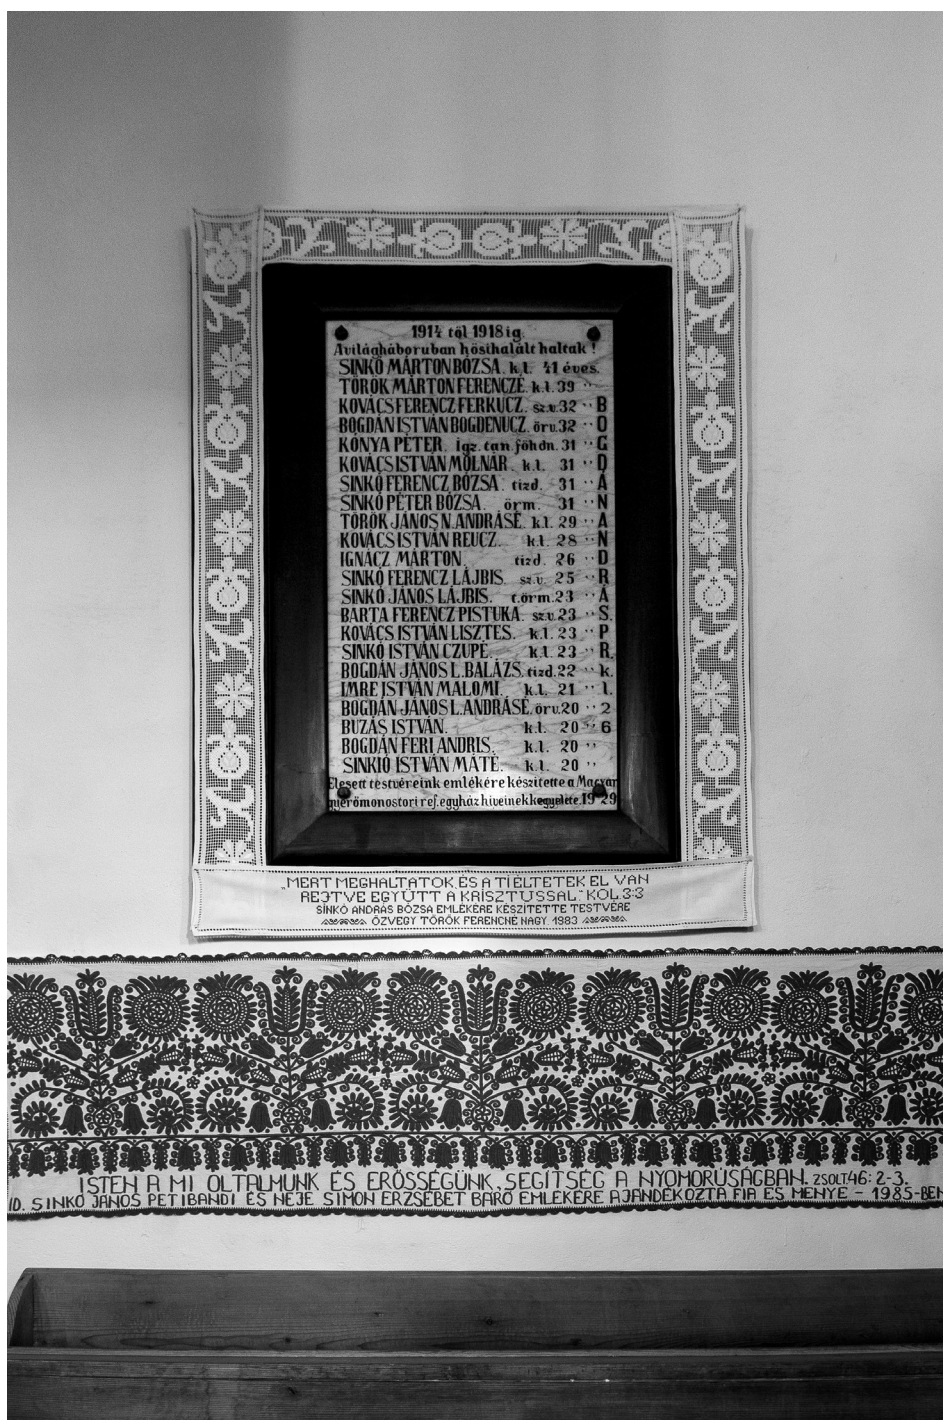 1914 től 1918 ig.
A világháboruban hősihalált haltak !
SINKÓ MÁRTON BÓZSA. k.l. 41 éves.
TÖRÖK MÁRTON FERENCZÉ. k.l. 39 "
KOVÁCS FERENCZ FERKUCZ. sz.v. 32 " B
BOGDÁN ISTVÁN BOGDENUCZ. őrv. 32 " O
KÓNYA PÉTER. igz. tan. főhdn. 31 " G
KOVÁCS ISTVÁN MOLNÁR. k.l. 31 " D
SINKÓ FERENCZ BÓZSA. tizd. 31 " Á
SINKÓ PÉTER BÓZSA. őrm. 31 " N
TÖRÖK JÁNOS N. ANDRÁSÉ. k.l. 29 " A
KOVÁCS ISTVÁN REUCZ. k.l. 28 " N
IGNÁCZ MÁRTON. tizd. 26 " D
SINKÓ FERENCZ LÁJBIS. sz.v. 25 " R
SINKÓ JÁNOS LÁJBIS. t.őrm. 23 " Á
BARTA FERENCZ PISTUKA. sz.v. 23 " S.
KOVÁCS ISTVÁN LISZTES. k.l. 23 " P
SINKÓ ISTVÁN CZUPÉ. k.l. 23 " R.
BOGDÁN JÁNOS L. BALÁZS. tizd. 22 " k.
IMRE ISTVÁN MALOMI. k.l. 21 " l.
BOGDÁN JÁNOS L. ANDRÁSÉ. őrv. 20 " 2
BUZÁS ISTVÁN. k.l. 20 " 6
BOGDÁN FERI ANDRIS. k.l. 20 "
SINKIÓ ISTVÁN MÁTÉ. k.l. 20 "
Elesett testvéreink emlékére készitette a Magyar
gyerőmonostori ref. egyház híveinek kegyelete. 1929
„MERT MEGHALTATOK, ÉS A TI ÉLTETEK EL VAN
REJTVE EGYÜTT A KRISZTUSSAL." KOL. 3:3
SINKÓ ANDRÁS BÓZSA EMLÉKÉRE KÉSZÍTETTE TESTVÉRE
ÖZVEGY TÖRÖK FERENCNÉ NAGY. 1983
ISTEN A MI OLTALMUNK ÉS ERŐSSÉGÜNK, SEGÍTSÉG A NYOMORÚSÁGBAN. ZSOLT. 46: 2-3.
ID. SINKÓ JÁNOS PETIBANDI ÉS NEJE SIMON ERZSÉBET BÁRÓ EMLÉKÉRE AJÁNDÉKOZTA FIA ÉS MENYE - 1985-BEN